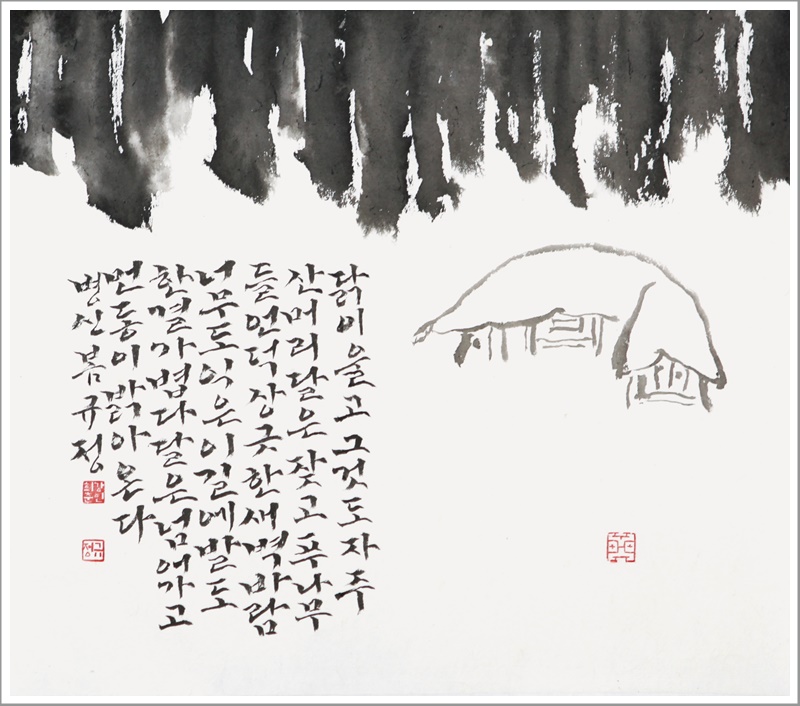 닭이 울고 그것도 자주
산머리 달은 잦고 푸나무
들 언덕 장긋한 새벽바람
너무도 익은 이 길에 발도
한결 가볍다 달은 넘어가고
먼동이 밝아온다
병신 봄 규정
규정